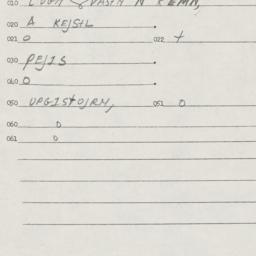 010
020 A KEJSTL .
021 0 022 +
030 PEJIS .
040 0 .
050 UPGISTOJRN, 051 0
060 0
061 0